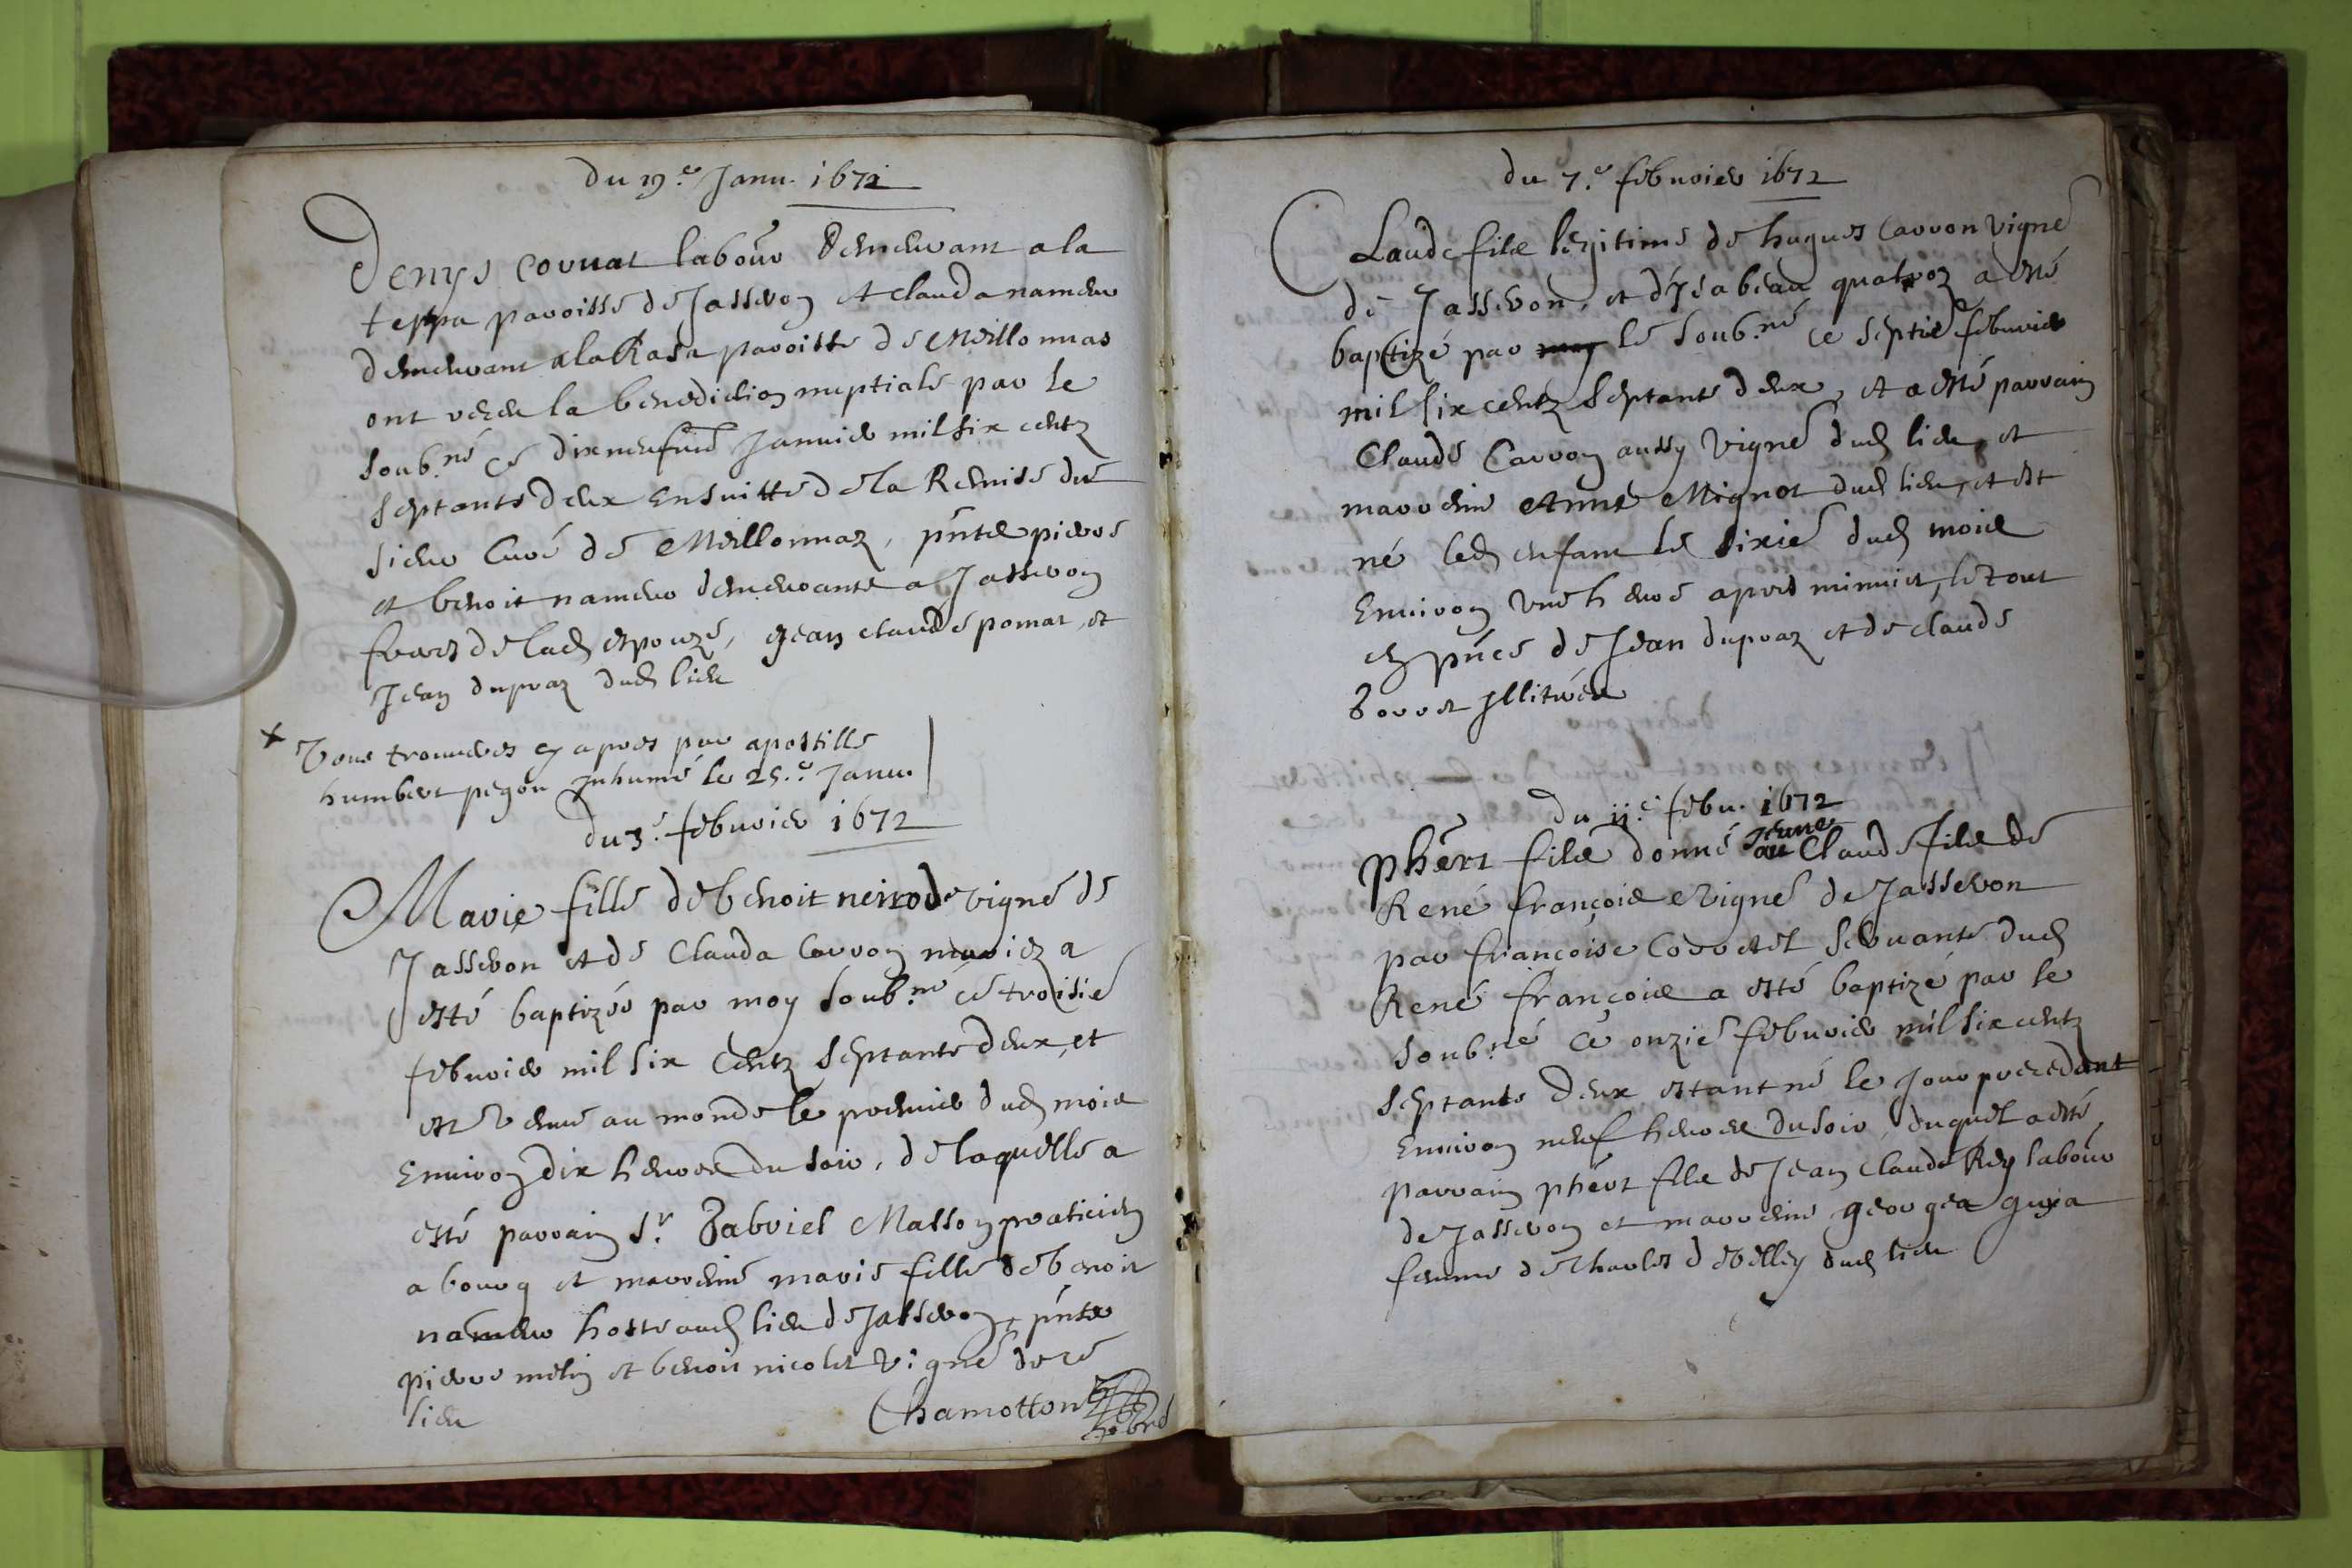 du 19.e Janu. 1672
Denys Corvat labour demeurant a la
teppa paroisse de Jasseron et Clauda nameur
demeurant a la Rasa paroisse de Meillonnas
ont receu la benediction nuptiale par le
soub.né ce dixneufvie Janvier mil six centz
septante deux ensuitte de la Remise du
sieur Curé de Meillonnaz, pnts pierre
et benoit nameur demeurants a Jasseron
freres de lad espouze, Jean claude pomat, et
Jean dupraz dud lieu
+ Vous trouveres cy apres par apostille
humbert pegon Inhumé le 25.e Janu.
du 3.e febvrier 1672
Marie fille de benoit neirod vigne de
Jasseron et de Clauda Carron mariez a
esté baptizée par moy soub.né ce troisie
febvrier mil six Centz septante deux, et
est venue au monde le premier dud mois
Environ dix heures du soir, de laquelle a
esté parrain S.r Gabriel Masson praticien
a bourg et marreine marie fille de benoit
nameur hoste aud lieu de Jasseron, pnts
pierre melin et benoit nicolet vigne de ce
lieu
Chamotton
du 7.e febvrier 1672
Claude filz legitime de hugues Carron vigne
de Jasseron, et d'ysabeau quatroz a esté
baptizé par moy le soub.né ce septie febvrier
mil six centz septante deux, et a esté parrain
Claude Carron aussy vigne dud lieu, et
marreine Anne Mignot dud lieu, et est
né led enfant le sixie dud mois
Environ une heure apres minuict, le tout
en pnce de Jean dupraz et de claude
borret Illitrez
du ii.e febv. 1672
phert filz donné au Jeune Claude filz de
René françois vigne de Jasseron
par françoise servante dud
René françois a esté baptizé par le
soub.né ce onzie febvrier mil six centz
septante deux estant né le jour precedant
Environ neuf heures du soir, duquel a esté
parrain phert filz de Jean Claude Rey labour
de Jasseron et marreine georgea guya
femme de Charles debelley dud lieu